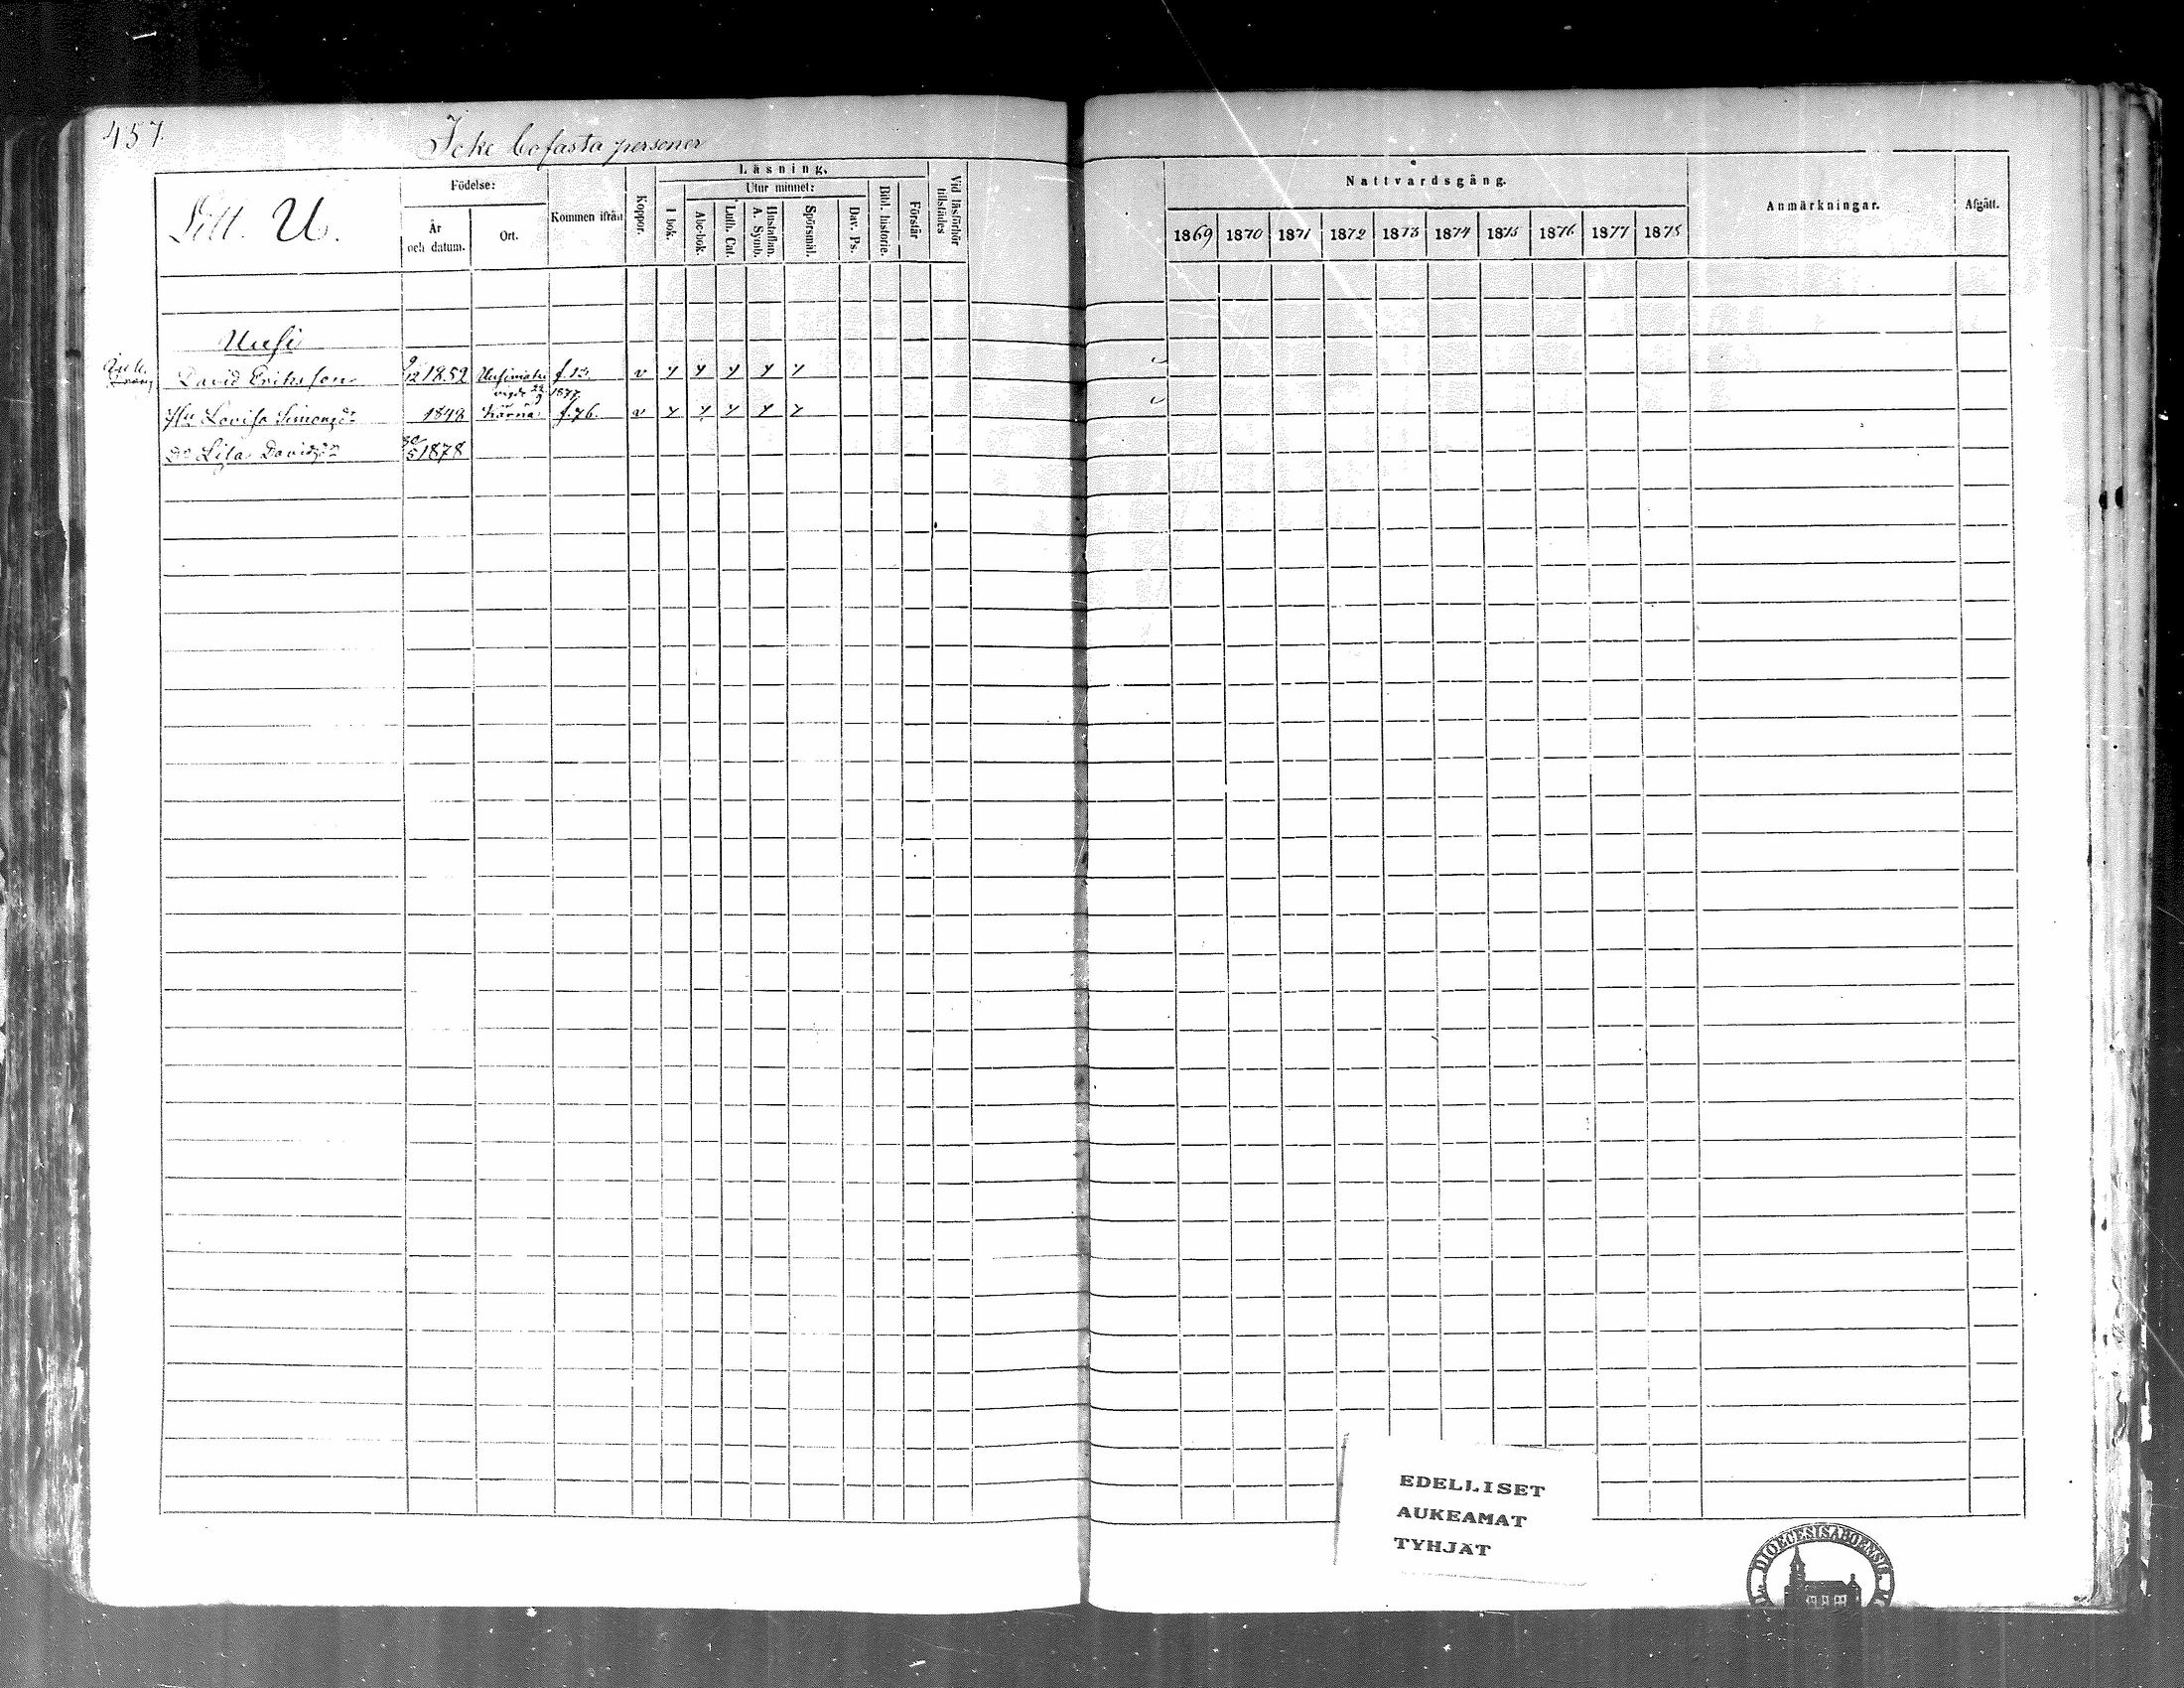 457.
Icke bofasta personer
Litt. U.
Födelse:
År och datum.
Ort.
Kommen ifrån
Koppor.
Läsning.
I bok.
Utur minnet:
Abc-bok.
Luth. Cat.
Hustaflan. A. Symb.
Spörsmål.
Dav. Ps.
Bibl. historie.
Förstår
Vid läsförhör tillstädes
Nattvardsgång.
1869 1870 1871 1872 1873 1874 1875 1876 1877 1878
Anmärkningar.
Afgått.
Uusi
David Eriksson 9/12 1852 f. 13. v
vigde 23/9 1877
Hu Lovisa Simonsdr 1848 f. 76. v
Dr Lisa Davidsdr 30/5 1878
EDELLISET
AUKEAMAT
TYHJÄT
DIOECESIS ABOENSIS